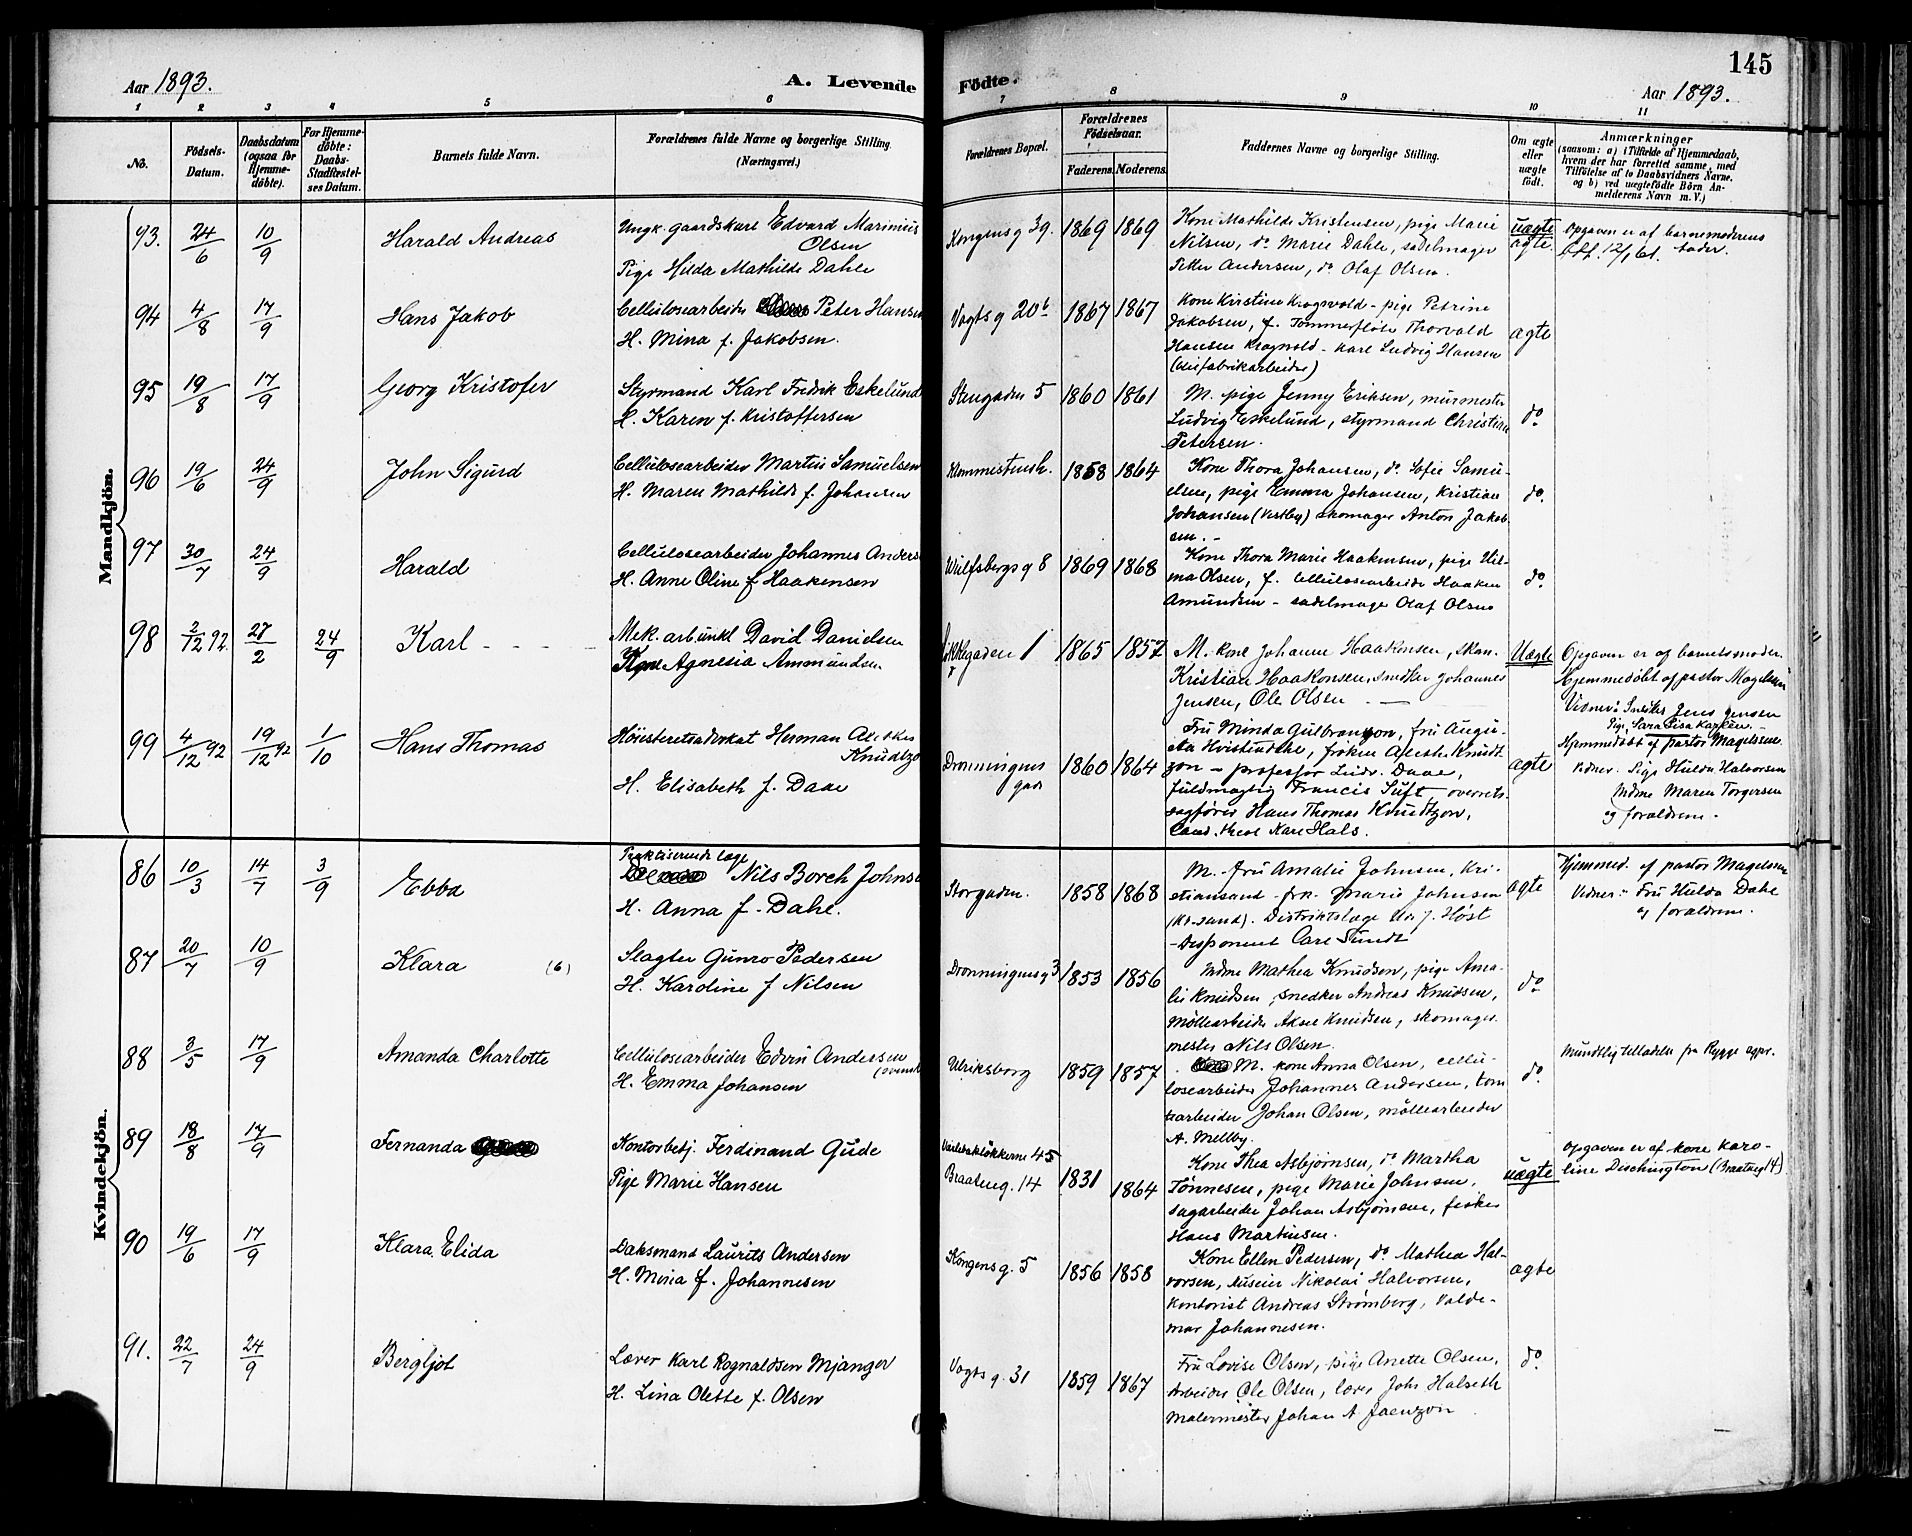 Aar 1893.
A. Levende
1 2 3 4 5 6
No.
Fødsels-
Datum.
Daabsdatum
(ogsaa for
Hjemme-
døbte).
For Hjemme-
døbte:
Daabs-
Stadfæstel-
ses Datum.
Barnets fulde Navn.
Forældrenes fulde Navne og borgerlige Stilling.
(Næringsvei.)
Mandkjön.
93. 24/6 10/9 Harald Andreas
Ungk. gaardskarl Edvard Marinius
Olsen
Pige Hilda Mathilde Dahle
94 4/8 17/9 Hans Jakob
Cellulosearbeider Peter Hansen
H. Mina f. Jakobsen.
95 19/8 17/9 Georg Kristofer
Styrmand Karl Fredrik Eskelund
H. Karen f. Kristoffersen
96 19/6 24/9 John Sigurd
Cellulosearbeider Martin Samuelsen
H. Maren Mathilde f. Johansen
97 30/7 24/9 Harald
Cellulosearbeider Johannes Anders
H. Anne Oline f Haakensen
98 2/12 92. 27/2 24/9 Karl
Mek. arb. unkl David Danielsen
Kone Agnesia Ammundsen
99 4/12 92 19/12 92 1/10 Hans Thomas
Høiesteretsadvokat Herman
Knudtzo
H. Elisabeth f. Daae
Kvindekjön.
86 10/3 14/7 3/9 Ebba
Praktiserende læge
Nils Borch Johnse
H. Anna f. Dahl.
87 20/7 10/9 Klara (6)
Slagter Gunro Pedersen
H. Karoline f Nilsen
88 3/5 17/9 Amanda Charlotte
Cellulosearbeider Edvin Andersen
(svensk
H. Emma Johansen
89 18/8 17/9 Fernanda
Kontorbetj. Ferdinand Gude
Pige Marie Hansen
90 19/6 17/9 Klara Elida
Daksmand Laurits Andersen
H. Mina f. Johannesen
91. 22/7 24/9 Bergljot
Lærer Karl Rognaldsen Mjanger
H. Lina Olette f. Olsen
145
Fødte.
Aar 1893.
7 8 9 10 11
Forældrenes Bopæl.
Forældrenes
Fødselsaar.
Faderens. Moderens.
Faddernes Navne og borgerlige Stilling.
Om ægte
eller
uægte
født.
Anmærkninger
(saasom: a) i Tilfælde af Hjemmedaab,
hvem der har forrettet samme, med
Tilføielse af to Daabsvidners Navne,
og b) ved uægtefødte Børn An-
melderens Navn m. V.)
Kongensg 39. 1869 1869
Kone Mathilde Kristensen, pige Marie
Nilsen, do Marie Dahle, sadelmager
Petter Andersen, do Olaf Olsen.
uægte
ægte
Opgaven er af barnemoderens
fader.
Vogtsg 20b 1867 1867
Kone Kirstine Kragsvold - pige Petrine
Jakobsen, f. Tømmerfløter Thorvald
Hansen Kragsvold - Karl Ludvig Hansen
ægte
Stengaden 5 1860 1861
M. pige Jenny Eriksen, murmester
Ludvig Eskelund, styrmand Christian
Petersen.
do.
1858 1864
Kone Thora Johansen, do Sofie Samu-
elsen, pige Emma Johansen, Kristian
Johansen (Vestby) skomager Anton Jakob
sen. -
do.
Wulfsbergsg 8 1869 1868
Kone Thora Marie Haakensen, pige Hil-
ma Olsen, f. Cellulosearbeider Haaken
Amundsen - sadelmager Olaf Olsen
do.
Løkkegaden 1 1865 1857
M. kone Johanne Haakonsen, skom.
Kristian Haakonsen, snedker Johannes
Jensen, Ole Olsen
Uægte
Opgaven er af barnets moder.
Hjemmedøbt af pastor Magelssen
Vidner: Snedker Jens Jensen
Pige Sara Lisa
Dronningens
gade
1860 1864
Fru Minda Gulbranson, fru Augu-
sta frøken Knudt-
zon - professor Ludv. Daae,
fuldmægtig Francis overrets-
sagfører Hans Thomas Knudtzon,
Cand. theol Karl Hals.
ægte
Hjemmedøbt af pastor Magelssen.
Vidner. Pige Hulda Halvorsen
Mdme Maren Torgersen
og forældrene.
Storgaden. 1858 1868
M. fru Amalie Johnsen, Kri-
stiansand - frk. Marie Johnsen
(Kr-sand). Distriktslæge Høst
- Disponent Carl Sundt
ægte
Hjemmed. af pastor Magelssen
Vidner: Fru Hulda Dahl
og forældrene.
Dronningensg 3 1853 1856
Mdme Mathea Knudsen, pige Ama-
lie Knudsen, snedker Andreas Knudsen,
Møllearbeider Aksel Knudsen, skomager-
mester Nils Olsen.
do
Ulriksborg 1859 1857
M. kone Anna Olsen, cellu-
losearbeider Johannes Andersen, tom
tearbeider Johan Olsen, møllearbeider
A. Mellby.
do.
Mundtlig tilladelse fra Rygge sgpr.
45
Braateng. 14 1831 1864
Kone Thea Asbjørnsen, do Martha
Tønnesen, pige Marie Johnsen,
sagarbeider Johan Asbjørnsen, fisker
Hans Martinsen.
uægte
Opgaven er af kone Karo-
line Dischington (Braateng 14)
Kongensg. 5 1856 1858
Kone Ellen Pedersen, do Mathea Hal-
vorsen, Nikolai Halvorsen,
kontorist Andreas Strømberg, Valde-
mar Johannesen.
ægte
Vogtsg. 31 1859 1867
Fru Lovise Olsen, pige Anette Olsen,
Arbeider Ole Olsen, lærer Johs Halseth
Malermester Johan A. Jaenzon
do